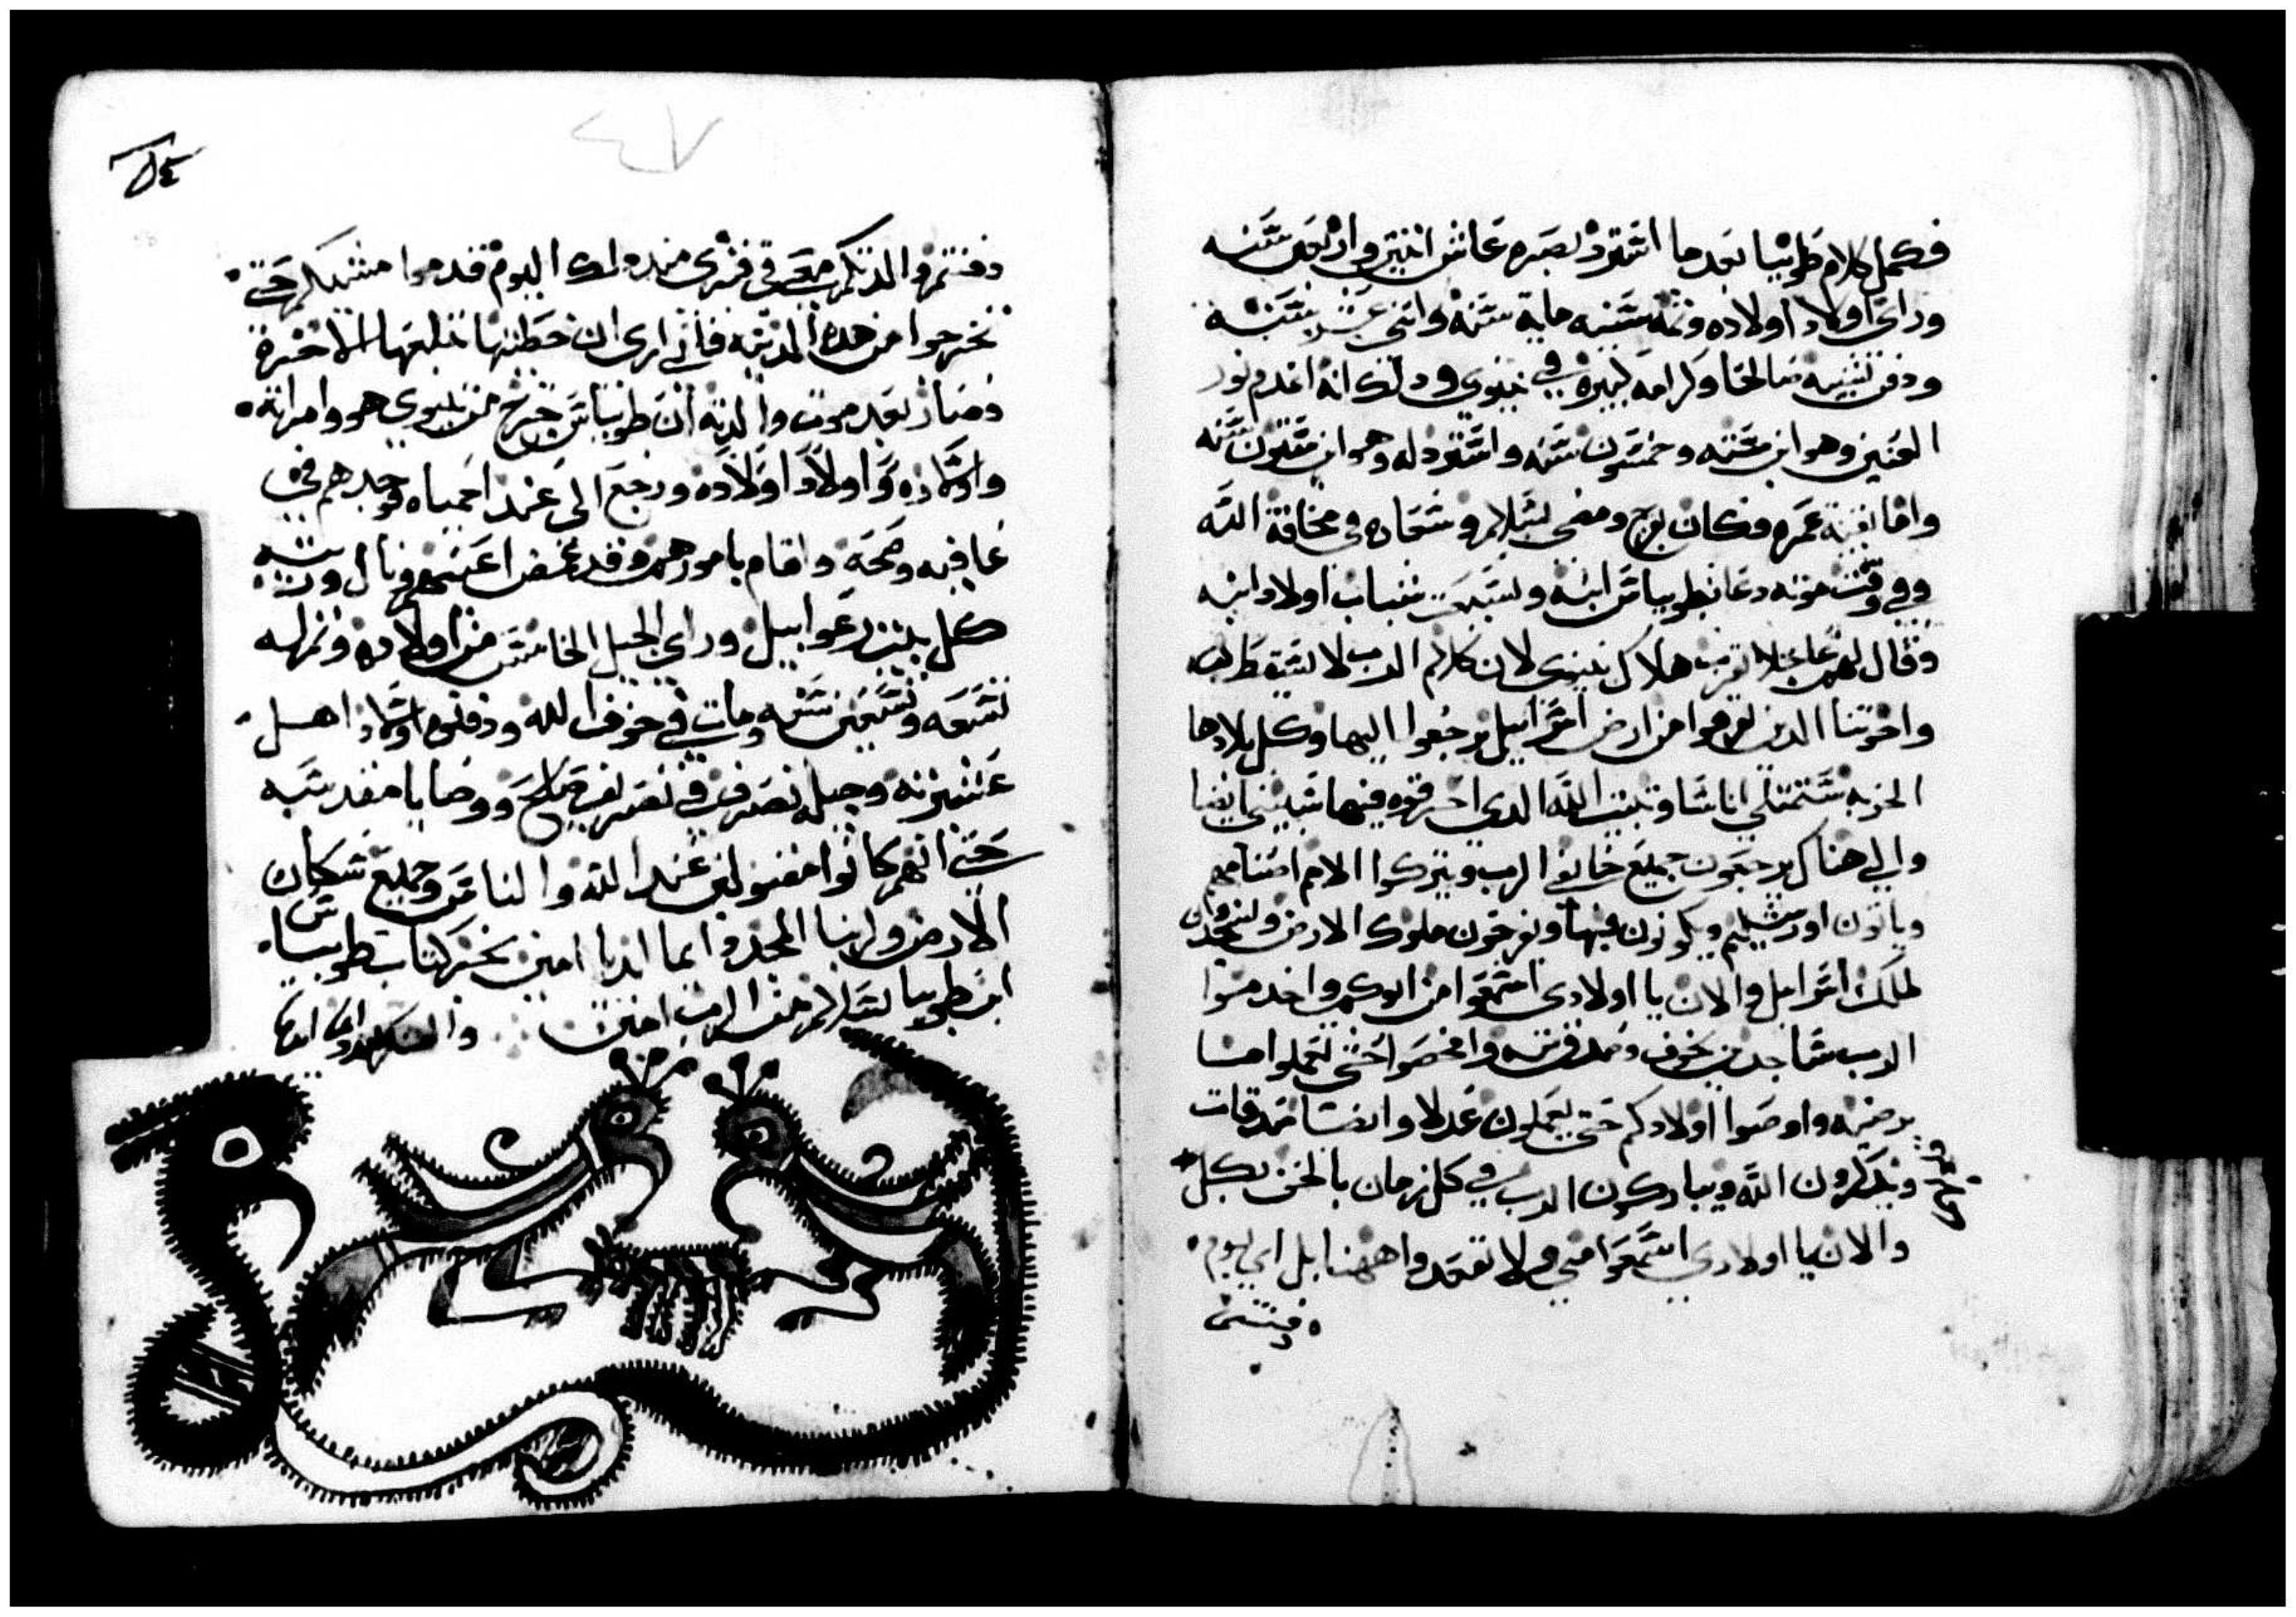 فكمل كلام طوبيا بعدما استرد بصره عاش اثنين واربعين سنه
وراى اولاد اولاده وتمة سنينه ماية سنة واثنى عشر سنه
ودفن بنينيه صالحا وكرامه كبيره في نينوى وذلك انه اعدم نور
العينين وهو ابن سته وخمسون سنه واسترد له وهو ابن ستون سنه
واما بقية عمره فكان بفرح ومضى بسلام وسعاده في مخافة الله
وفي وقت موته دعا بطوبياس ابنه ولسبعت شباب اولاد ابنه
وقال لهم عاجلا يقرب هلاك نينوى لان كلام الرب لا يسقط
واخوتنا الدين تفرقوا من ارض اسراييل يرجعوا اليها وكل بلادها
الخربه ستمتلي اناسا وبيت الله الدى احترقوه فيها سيبنى ايضا
والى هناك يرجعون جميع خايفى الرب ويتركوا الامم اصنامهم
وياتون اورشليم ويكونون فيها ويفرحون ملوك الارض ويسجدون
لملك اسراييل والان يا اولادى اسمعوا من ابوكم واخدموا
الرب ساجدين بخوف وصدق وافحصوا حتى تعملوا مسا
يرضيه واوصوا اولادكم حتى يعملون عدلا وايضا صدقات
ويدكرون الله ويباركون الرب في كل زمان بالحق بكل
والان يا اولادى اسمعوا منى ولا تقعدوا ههنا بل اى يوم
دفنتمن
٤٧
دفنتمو والدتكم معى في قبرى منه دلك اليوم قدموا مشيكم حتى
تخرجوا من هده المدينه فانى ارى ان خطيتها تبلغها الاخره
وصار بعد موت والدته ان طوبياس خرج من نينوى هو وامراته
واولاده واولاد اولاده ورجع الى عند احمياه فوجدهم في
عافيه وصحه واقام بامورهم وقد غمض اعينهم ونال ورث
كل بيت رعوابيل وراى الجيل الخامس من اولاده وتم له
تسعه وتسعين سنه ومات في خوف الله ودفنوه اولاد اهل
عشيرته وجيله تصرف في تصريف صالح ووصايا مقدسه
حتى انهم كانوا مقبولين عند الله والناس وجميع سكان
الارض ولربنا المجد دايما ابديا امين نجز كتاب طوبياس
ابن طوبيا بسلام من الرب امين والشكر لله دايما ابدا